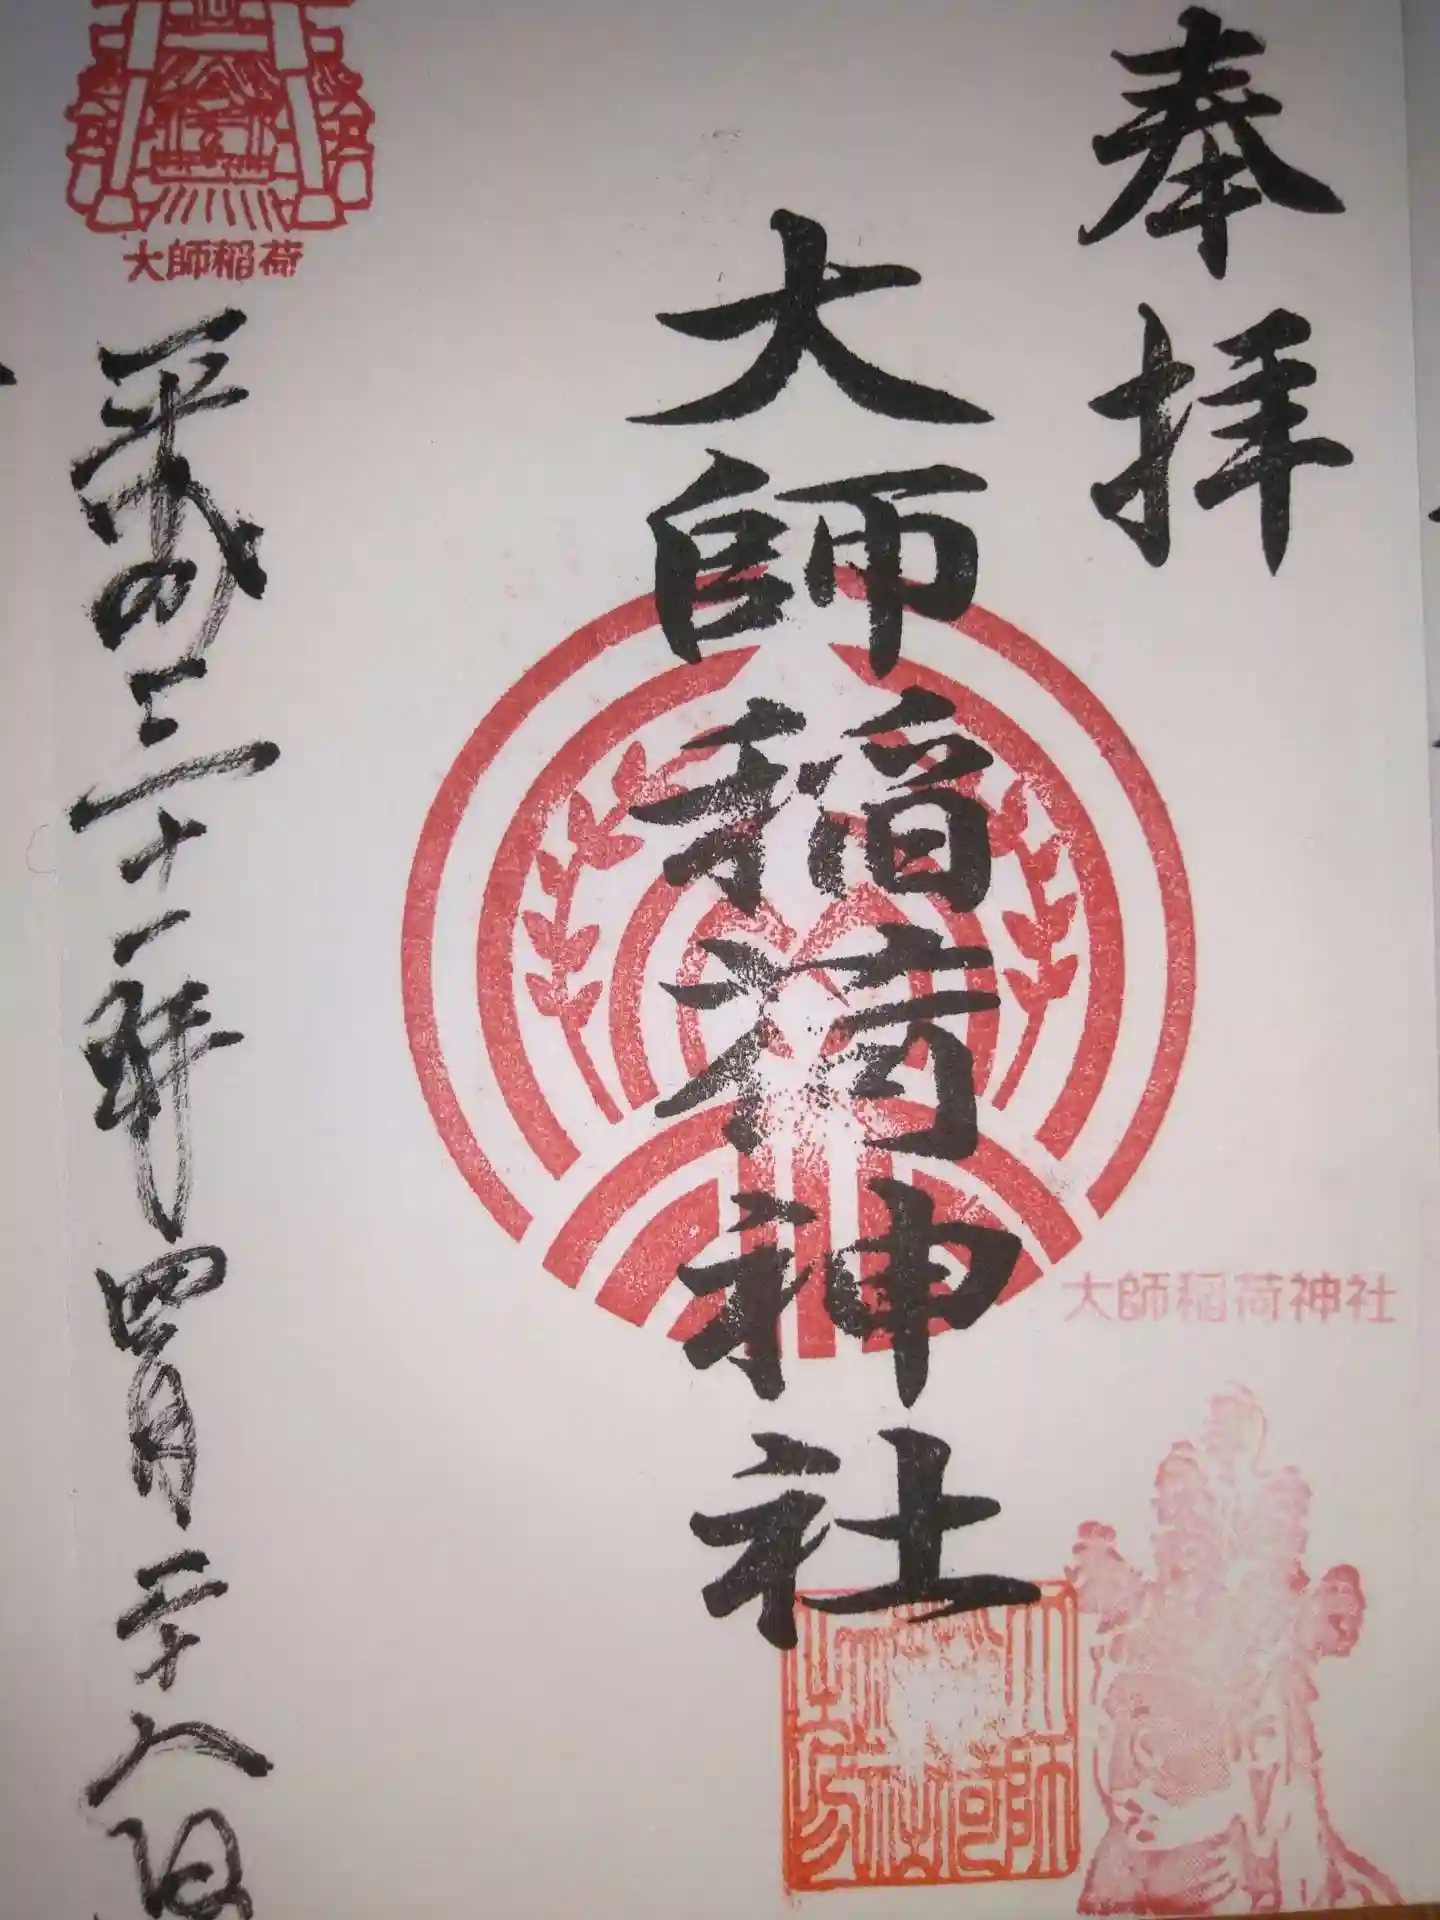 奉拝
大師稲荷神社
大師稲荷神社
大師稲荷
平成三十一年四月二十八日